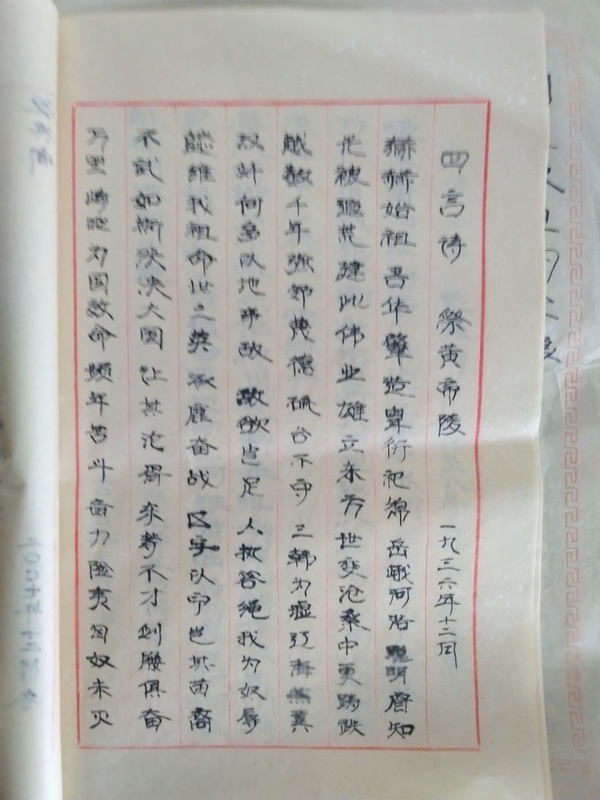 四言诗 祭黄帝陵 一九三六年十二月
赫赫始祖吾华肇造胄衍祀绵岳峨河浩聪明睿知
光被遐荒建此伟业雄立东方世变沧桑中更蹉跌
越数千年强邻蔑德琉台不守三韩为墟辽海燕冀
汉奸何多以地事敌敌欲岂足人执笞绳我为奴辱
懿维我祖命世之英涿鹿奋战区宇以宁岂其苗裔
不武如斯泱泱大国让其沦胥东等不才剑屦俱奋
万里崎岖为国效命频年苦斗备力险夷匈奴未灭